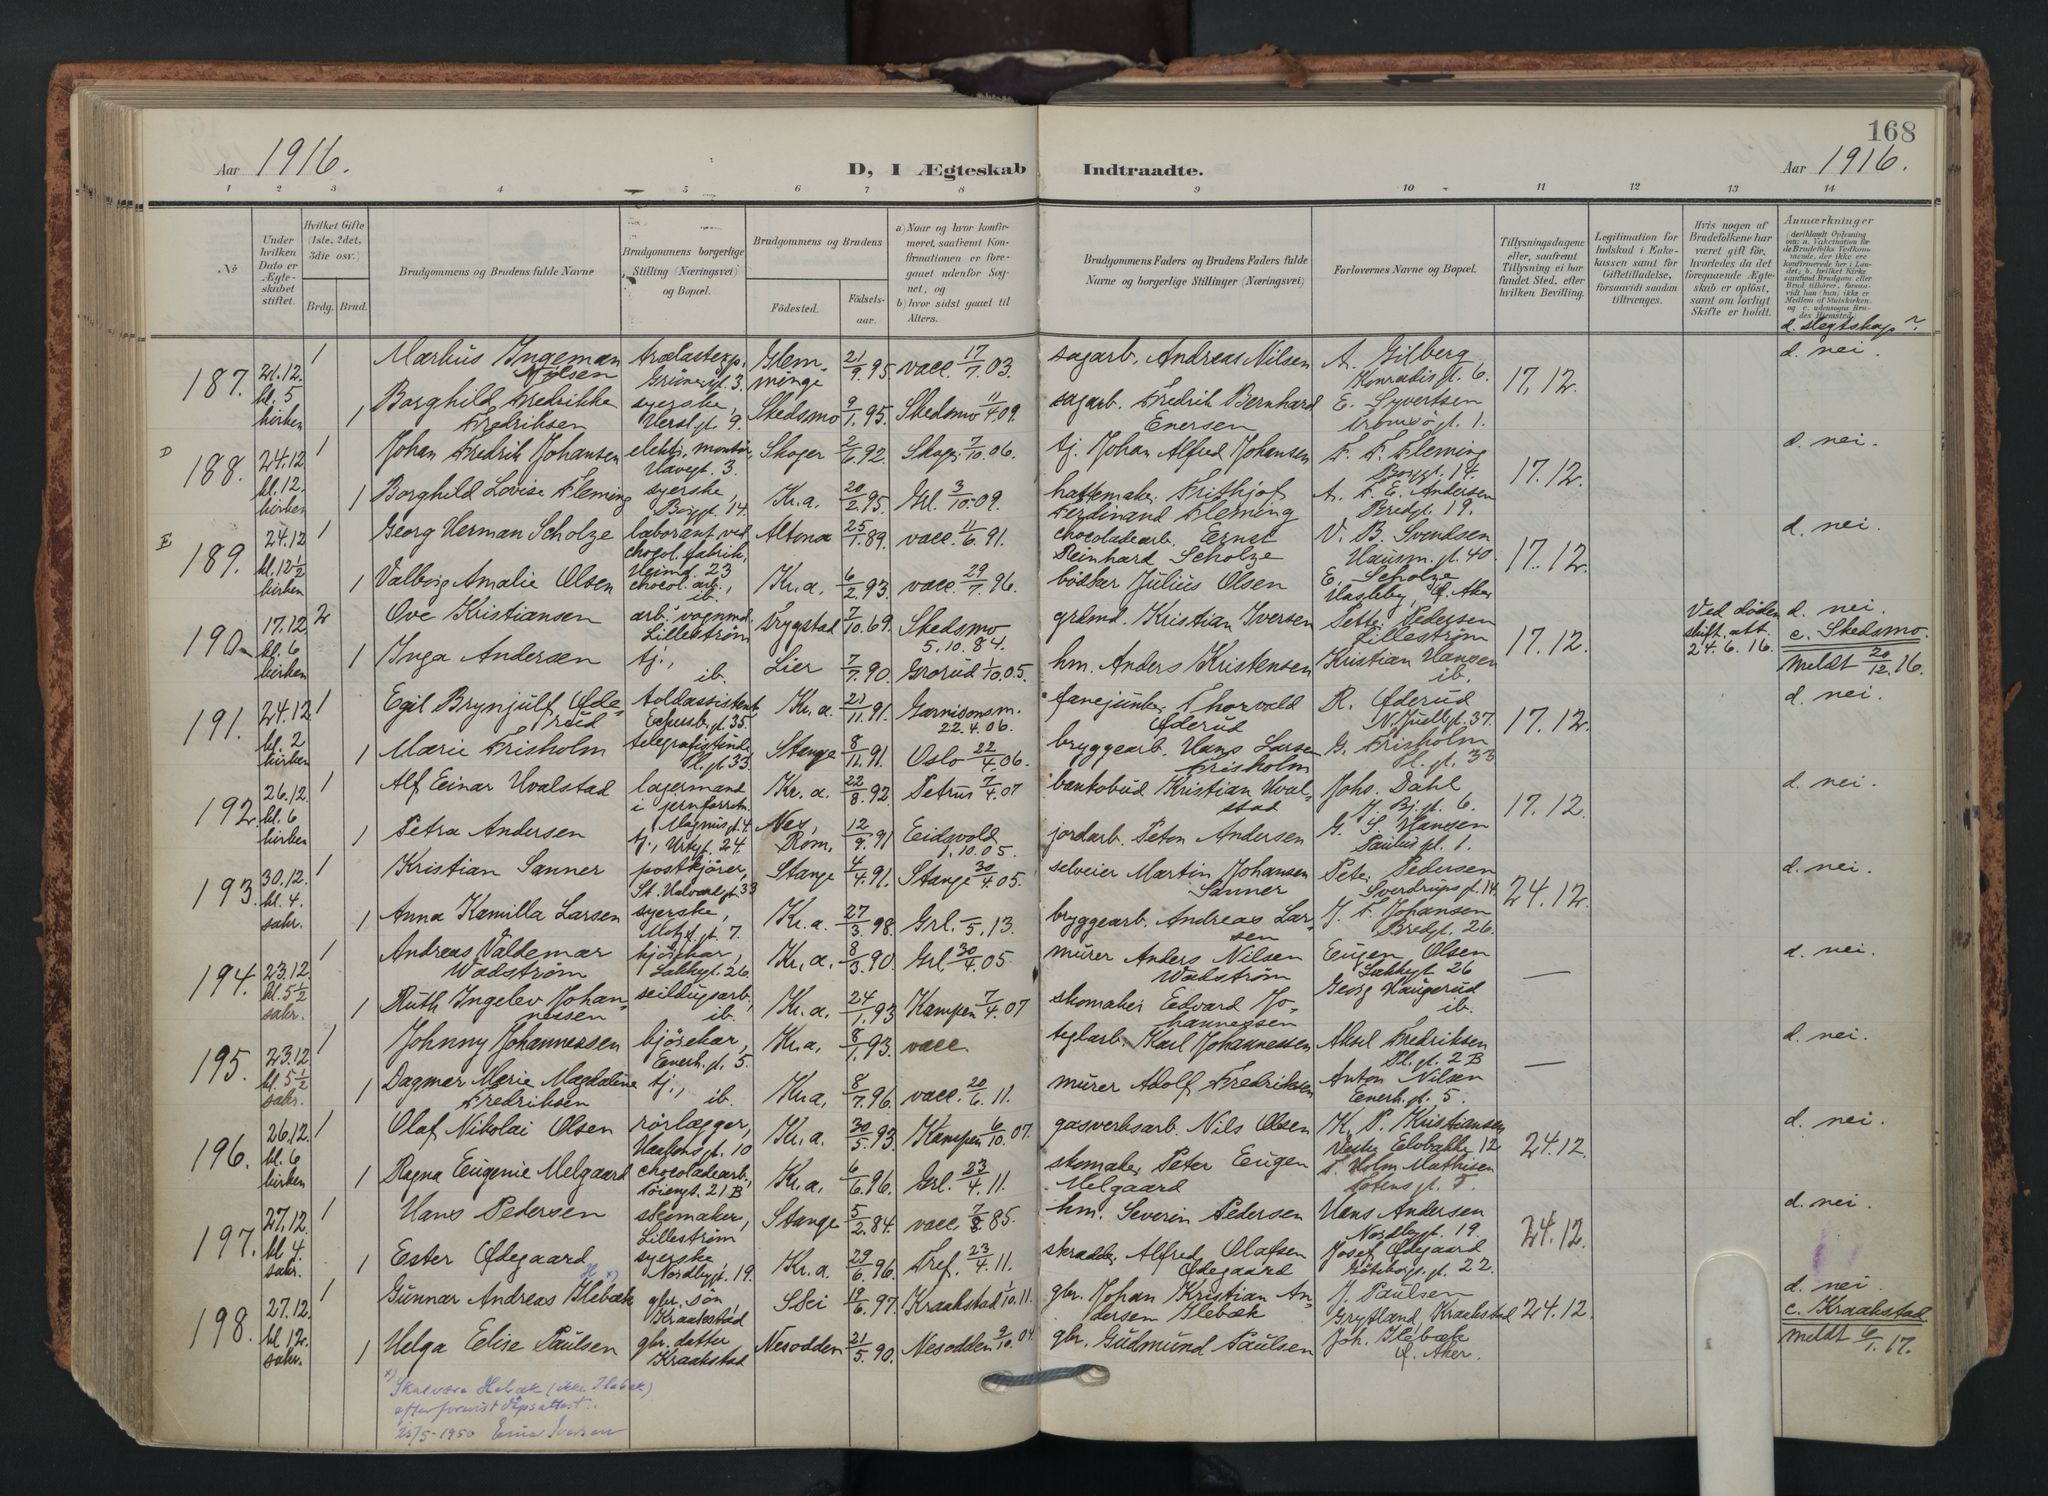 168
Aar 1916.
D, I Ægteskab Indtraadte.
Aar 1916.
1 2 3 4 5 6 7 8 9 10 11 12 13 14
No
Under hvilken Dato er Ægteskabet stiftet.
Hvilket Gifte (1ste, 2det, 3die osv.)
Brdg. Brud.
Brudgommens og Brudens fulde Navne
Brudgommens borgerlige Stilling (Næringsvei) og Bopæl.
Brudgommens og Brudens
Fødested. Fødsels-aar.
a) Naar og hvor konfirmeret, saafremt Konfirmationen er foregaaet udenfor Sognet, og
b) hvor sidst gaael til Alters.
Brudgommens Faders og Brudens Faders fulde Navne og borgerlige Stillinger (Næringsvei)
Forlovernes Navne og Bopæl.
Tillysningsdagene eller, saafremt Tillysning ei har fundet Sted, efter hvilken Bevilling.
Legitimation for Indskud i Enkekassen samt for Giftetilladelse, forsaavidt saadan tiltrænges.
Hvis nogen af Brudefolkene har været gift før, hvorledes da det foregaaende Ægteskab er opløst, samt om lovligt Skifte er holdt.
Anmærkninger
d. slegtskap?
187. 21.12 kl. 5 kirken 1
Markus Ingeman Nilsen
trælastexp., Grünersgt. 3.
Glemminge 21/9.95. vacc. 17/7.03.
sagarb. Andreas Nilsen
A. Gilberg Konradisgt. 6.
17.12.
d. nei.
1 Borghild Fredrikke Fredriksen
syerske, Verslgt. 9.
Skedsmo 9/1.95. Skedsmo 11/4.09.
sagarb. Fredrik Bernhard Enersen
E. Syvertsen Tromsøgt. 1.
D
188. 24.12 kl. 12. kirken 1
Johan Fredrik Johansen
elektr. montør, Havegt. 3.
Skoger 2/6.92. Skoger 7/10.06.
tj. Johan Alfred Johansen
F. F. Fleming Borggt. 14.
17.12.
d. nei.
1 Borghild Lovise Fleming
syerske, Borggt. 14.
Kr.a. 20/2.95. Grl. 3/10.09.
hattemaker Frithjof Ferdinand Fleming
A. F. E. Andersen Bredgt. 19.
E
189. 24.12 kl. 12½ kirken 1
Georg Herman Scholze
laborant ved chocol. fabrik, Heimd. 23
Altona 25/7.89. vacc. 11/6.91.
chocoladearb. Ernst Reinhard Scholze
V. B. Svendsen Hausm.gt. 40.
17.12.
d. nei.
1 Valborg Amalie Olsen
chocol. arb., ib.
Kr.a. 6/2.93. vacc. 29/7.96.
bödker Julius Olsen
E. Scholze Hasleby, Ø. Aker
190. 17.12 kl. 6 kirken 2
Ove Kristiansen
arb. vognmd. Lillestrøm
Trygstad 7/10.69. Skedsmo 5.10.84.
grdmd. Kristian Iversen
Petter Pedersen Lillestrøm
17.12.
Ved døden skift. att. 24.6.16.
d. nei. c. Skedsmo. meldt 20/12.16.
1 Inga Andersen
tj., ib.
Lier 7/7.90. Grorud 1/10.05.
hm. Anders Kristensen
Kristian Hansen ib.
191. 24.12 kl. 2 kirken 1
Egil Brynjulf Øderud
toldassistent
Kr.a. 21/11.91. Garnisonsm. 22.4.06.
fanejunker Thorvald Øderud
R. Øderud N. Juelsgt. 37.
17.12.
d. nei.
1 Marie Frisholm
telegrafistinde, Pl.gt. 33.
Stange 8/11.91. Oslo 22/4.06.
bryggearb. Hans Larsen Frisholm
G. Frisholm Pl. gt. 33
192. 26.12. kl. 6 kirken 1
Alf Einar Hvalstad
lagermand i jernforretn. Magnusgt. 4
Kr.a. 22/8.92 Petrus 7/4.07
bankobud Kristian Hvalstad
Johs. Dahl J. Bj.gt. 6.
17.12.
d. nei.
1 Petra Andersen
tj., Urtgt. 24.
Nes, Rom. 12/9.91 Eidsvold 1.10.05.
jordarb. Peton Andersen
G. S. Hansen Paulus pl. 1.
193. 30.12. kl. 4. sakr. 1
Kristian Sanner
postkjører, St. Halvardsgt. 33
Stange 4/4.91. Stange 30/4.05.
selveier Martin Johansen Sanner
Peter Pedersen Sverdrupsgt. 14.
24.12.
d. nei.
1 Anna Kamilla Larsen
syerske, Motzf.gt. 7.
Kr.a. 27/3.98. Grl. -5.13.
bryggearb. Andreas Larsen
J. F. Johansen Bredgt. 26.
194. 23.12. kl. 5½ sakr. 1
Andreas Valdemar Wadstrøm
kjørekar, Lakkgt. 26
Kr.a. 8/3.90. Grl. 30/4.05
murer Anders Nilsen Wadstrøm
Eugen Olsen Lakkgt. 26
—
d. nei.
1 Ruth Ingelev Johannessen
seildugsarb., ib.
Kr.a. 24/1.93 Kampen 7/4.07
skomaker Edvard Johannessen
Georg Haugerud ib.
195. 23.12. kl. 5½ sakr. 1
Johnny Johannessen
kjørekar, Enerh.gt. 5.
Kr.a. 8/1.93. vacc.
teglarb. Karl Johannessen
Aksel Fredriksen Pl. gt. 2 B
—
d. nei.
1 Dagmar Marie Magdaline Fredriksen
tj., ib.
Kr.a. 8/7.96. vacc. 20/6.11.
murer Adolf Fredriksen
Anton Nilsen Enerh.gt. 5.
196. 26.12. kl. 6 kirken 1
Olaf Nikolai Olsen
rørlægger, Haakonsgt. 10
Kr.a. 30/5.93. Kampen 6/10.07.
gasverksarb. Nils Olsen
K. P. Kristiansen Vestre Elvbakke 12
24.12.
d. nei.
1 Ragna Eugenie Melgaard
chocoladearb., Tøiengt. 21 B
Kr.a. 6/6.96. Grl. 23/4.11.
skomaker Peter Eugen Melgaard
T. Holm Mathisen Totensgt. 5.
197. 27.12. kl. 4. sakr. 1
Hans Pedersen
skomaker, Lillestrøm
Stange 5/2.84. vacc. 7/8.85.
hm. Severin Pedersen
Hans Andersen Nordbygt. 19.
24.12.
d. nei.
1 Ester Ødegaard
syerske Nordbygt. 19.
Kr.a. 29/6.96. Tref. 23/4.11.
skradder Alfred Olafsen Ødegaard
Josef Ødegaard Göteborggt. 22.
198. 27.12. kl. 12. sakr. 1
H x)
Gunnar Andreas Ilebæk
gbr. søn Kraakstad
Skei 19/6.97. Kraakstad 1/10.11.
gbr. Johan Kristian Andersen Ilebæk
J. Paulsen Grytland, Kraakstad
24.12.
d. nei. c. Kraakstad meldt 6/1.17.
1 Helga Edise Paulsen
gbr. datter Kraakstad
Nesodden 21/5.90. Nesodden 9/10.04.
gbr. Gudmund Paulsen
Joh. Ilebæk Ø. Aker.
x) Skal være Hebæk (ikke Ilebæk)
efter forevist dåpsattest.
25/5-1950 Iversen